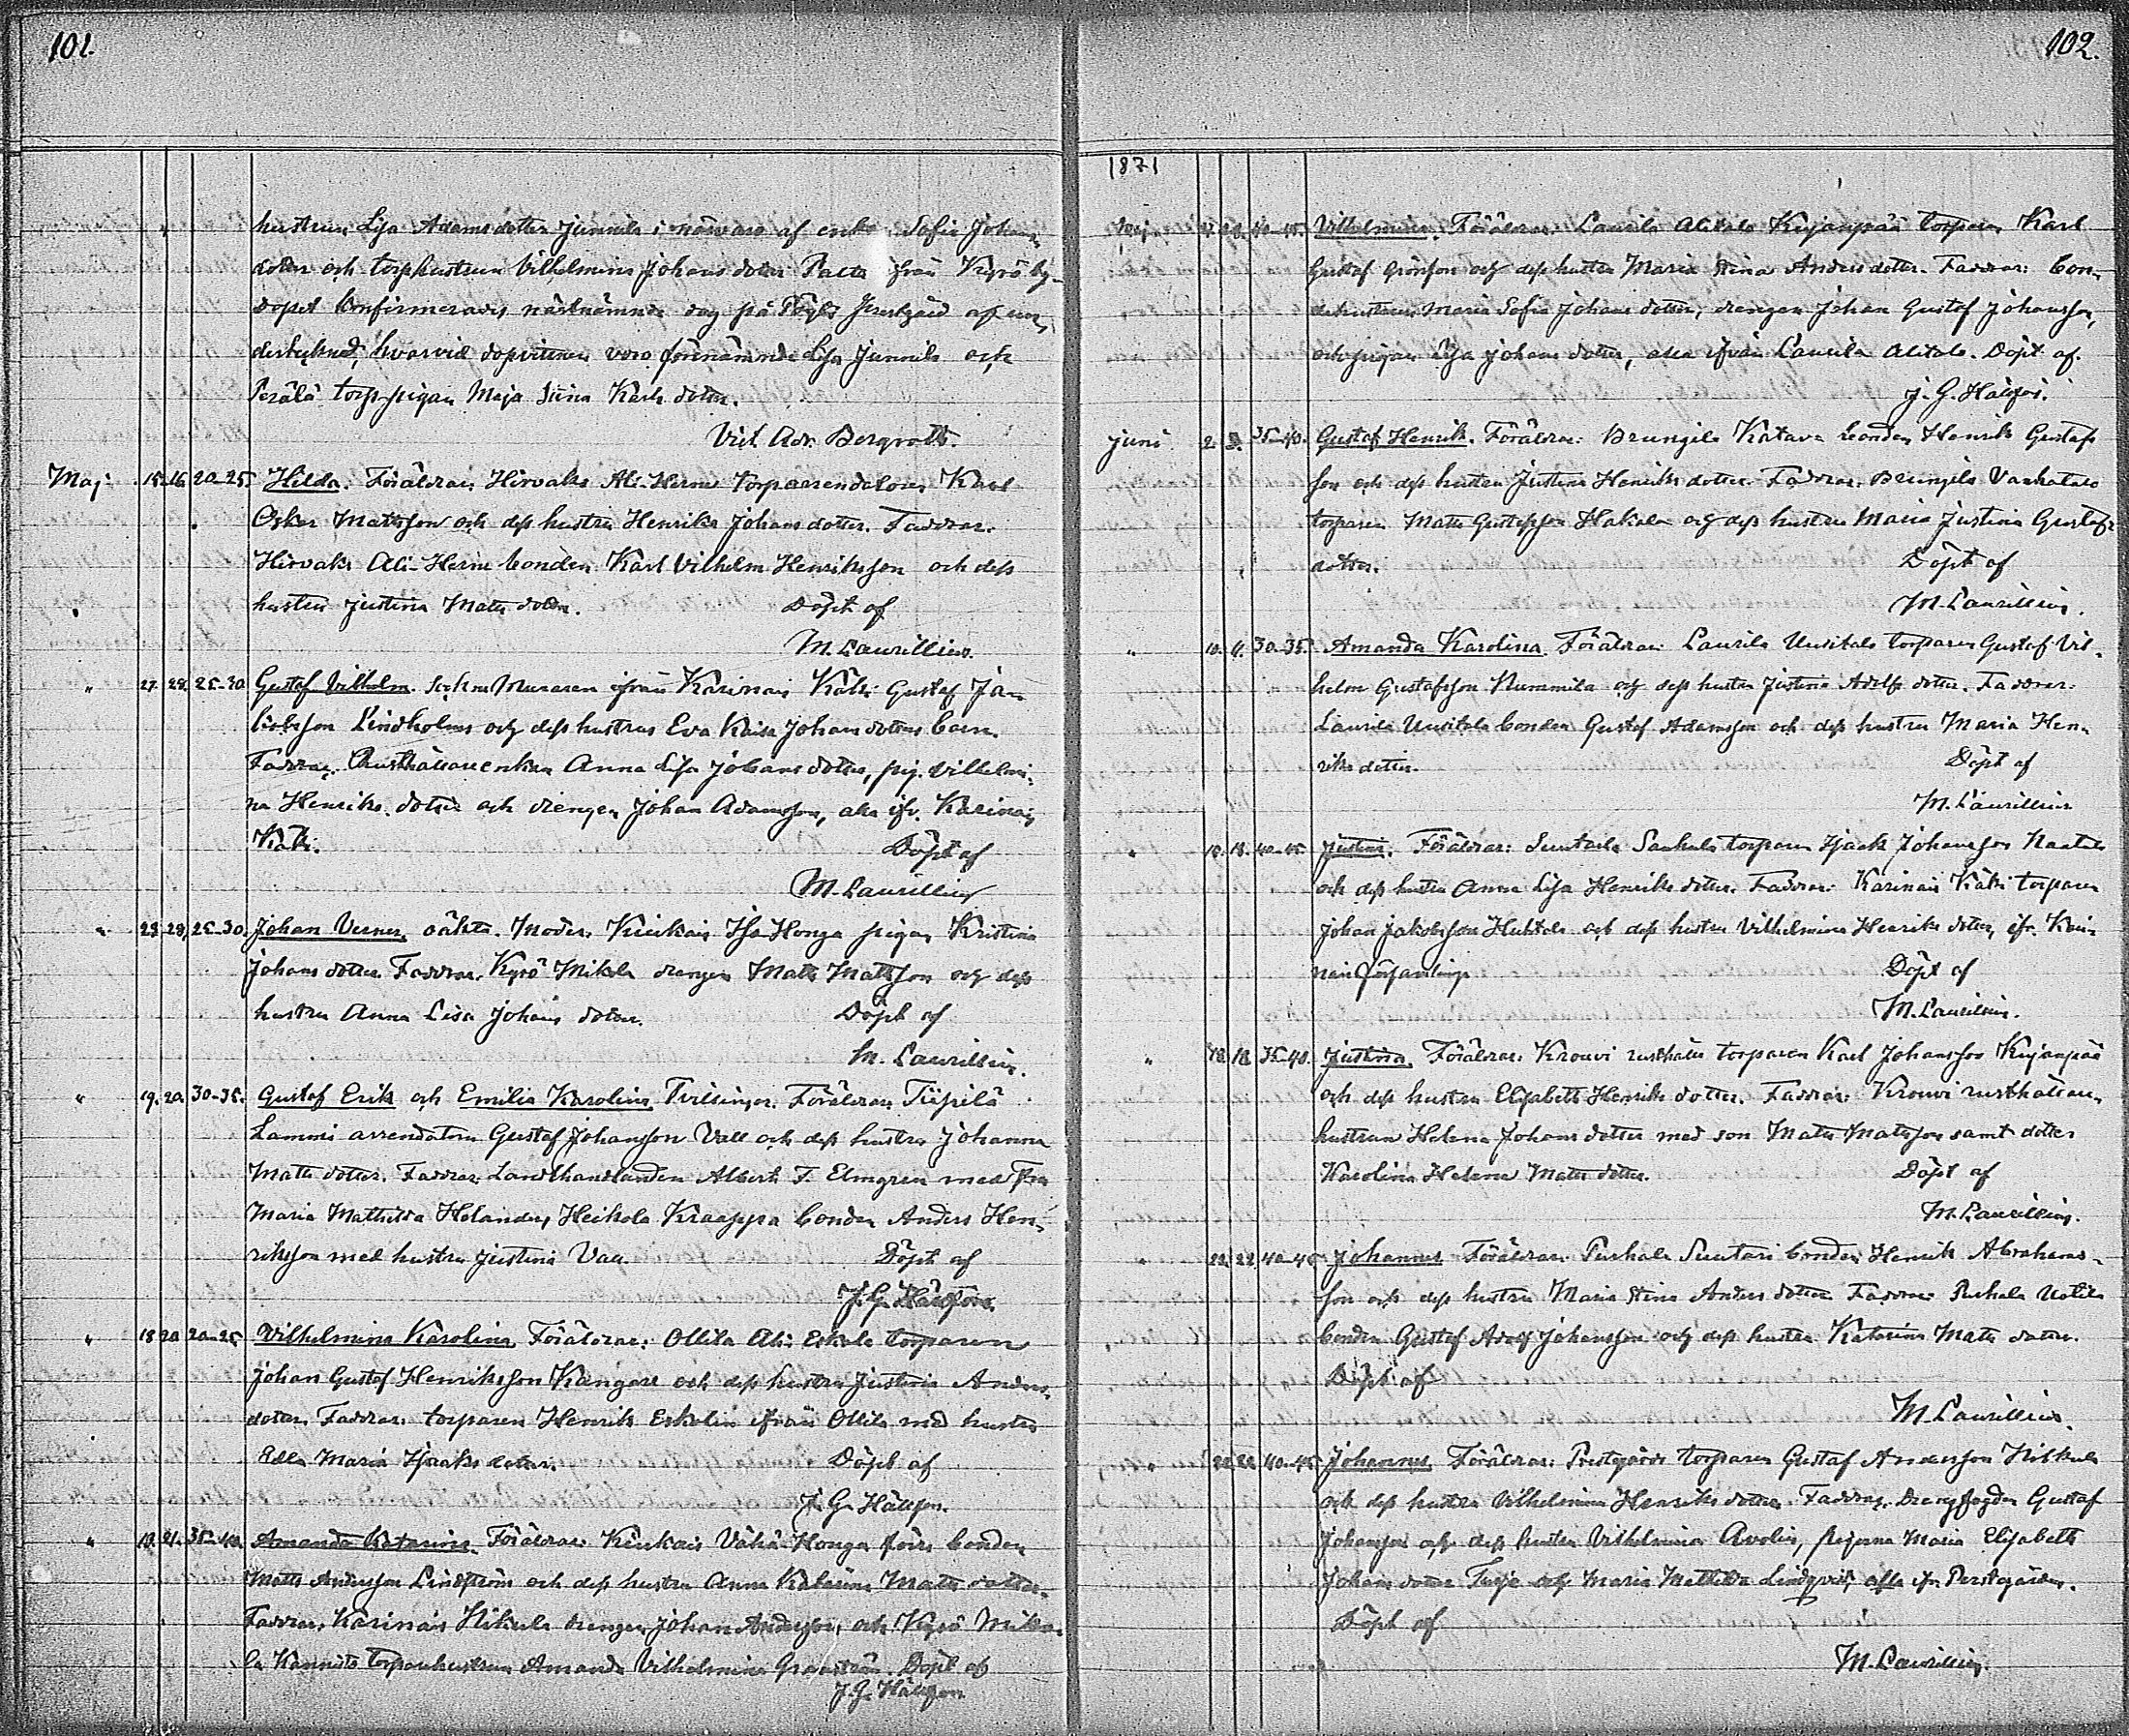 101.
hustrun Lisa Adamsdotter Junnila i närvaro af enkan Sofia Johans
dotter och torphustrun Vilhelmina Johansdotter Palta ifrån Kyrö by.
Dopet konfirmerades nästnämnde dag på Pöytis Prestgård af un-
dertecknad, hvarvid dopvittnen voro förenämnde Lisa Junnila och
Perälä torp-pigan Maja Stina Karlsdotter.
Vict. Adr. Bergroth.
Maj 15. 16. 20-25. Hilda. Föräldrar: Hirvaks Ali-Herne torparrendatoren Karl
Oskar Mattsson och dess hustru Henrika Johansdotter. Faddrar:
Hirvaks Ali-Herne bonden Karl Vilhelm Henriksson och dess
hustru Justina Matsdotter. Döpt af
M. Laurellius.
" 27. 28. 25-30 Gustaf Vilhelm. Muraren ifrån Karinais Käki Gustaf Ja-
kobsson Lindholms och dess hustrus Eva Kaisa Johansdotters barn.
Faddrar: Rusthållareenkan Anna Lisa Johansdotter, pig. Vilhelmi-
na Henriksdotter och drengen Johan Adamsson, alla ifr. Karinais
Käki. Döpt af
M. Laurellius
" 23. 28. 25-30. Johan Verner, oäkta. Moder: Kuikais Iso-Honga pigan Kristina
Johansdotter. Faddrar: Kyrö Mikola drengen Matts Mattsson och dess
hustru Anna Lisa Johansdotter. Döpt af
M. Laurellius.
" 19. 20. 30-35. Gustaf Erik och Emilia Karolina, Tvillingar. Föräldrar: Tiipilä
Lammi arrendatorn Gustaf Johansson Vall och dess hustru Johanna
Mattsdotter. Faddrar: Landthandlanden Albert F. Elmgren med Fru
Maria Mathilda Helander, Heikola Kraappa bonden Anders Hen-
riksson med hustru Justina Vall. Döpt af
J. G. Hällfors.
" 18 20 20-25 Vilhelmina Karolina. Föräldrar: Ollila Ali-Eskola torparen
Johan Gustaf Henriksson Kangare och dess hustru Justina Anders-
dotter. Faddrar: torparen Henrik Eskolin ifrån Ollila med hustru
Edla Maria Isaksdotter. Döpt af
J. G. Hällfors.
" 19. 21. 35-40. Amanda Katarina. Föräldrar: Kuikais Vähä-Honga förra bonden
Matts Andersson Lindström och dess hustru Anna Katarina Mattsdotter.
Faddrar: Karinais Hikula drengen Johan Andersson, och Kyrö Miko-
la Kannisto torparehustrun Amanda Vilhelmina Granström. Döpt af
J. G. Hällfors
102.
1871
Maj 40-45. Vilhelmina. Föräldrar: Laurila Alitalo Kujanpää torparen Karl
Gustaf Grönfors och dess hustru Maria Stina Andersdotter. Faddrar: bon-
dehustrun Maria Sofia Johansdotter, drengen Johan Gustaf Johansson,
och pigan Lisa Johansdotter, alla ifrån Laurila Alitalo. Döpt af
J. G. Hällfors.
Juni 2. 3. 35-40. Gustaf Henrik. Föräldrar: Brungila Katava bonden Henrik Gustafs-
son och dess hustru Justina Henriksdotter. Faddrar: Brungila Vanhatalo
torparen Matts Gustafsson Hakala och dess hustru Maria Justina Gustafs-
dotter. Döpt af
M. Laurellius.
" 10. 11. 30-35. Amanda Karolina. Föräldrar: Laurila Uusitalo torparen Gustaf Vil-
helm Gustafsson Nummila och dess hustru Justina Adolfsdotter. Faddrar:
Laurila Uusitalo bonden Gustaf Adamsson och dess hustru Maria Hen-
riksdotter. Döpt af
M. Laurellius
" 18. 18. 40-45. Justina. Föräldrar: Suutarla Saukula torparen Isaak Johansson
och dess hustru Anna Lisa Henriksdotter. Faddrar: Karinais Käki torparen
Johan Jakobsson Huhtala och dess hustru Vilhelmina Henriksdotter, ifr. Kari-
nais församling. Döpt af
M. Laurellius.
" 18. 18. 35-40. Justina. Föräldrar: Krouvi rusthålls torparen Karl Johansson Kujanpää
och dess hustru Elisabeth Henriksdotter. Faddrar: Krouvi rusthållare-
hustrun Helena Johansdotter med son Matts Mattsson samt dotter
Karolina Helena Mattsdotter. Döpt af
M. Laurellius.
" 22. 22. 40-45 Johannes. Föräldrar: Purhala Suutari bonden Henrik Abrahams-
son och dess hustru Maria Stina Andersdotter. Faddrar: Purhala Uotila
bonden Gustaf Adolf Johansson och dess hustru Katarina Mattsdotter.
Döpt af
M. Laurellius.
" 22. 22. 40-45 Johannes. Föräldrar: Prestgårds torparen Gustaf Andersson Hikula
och dess hustru Vilhelmina Henriksdotter. Faddrar: Drengfogden Gustaf
Johansson och dess hustru Vilhelmina Avolin, pigorna Maria Elisabeth
Johansdotter och Maria Mathilda Lindqvist, alla ifr. Prestgården.
Döpt af
M. Laurellius.